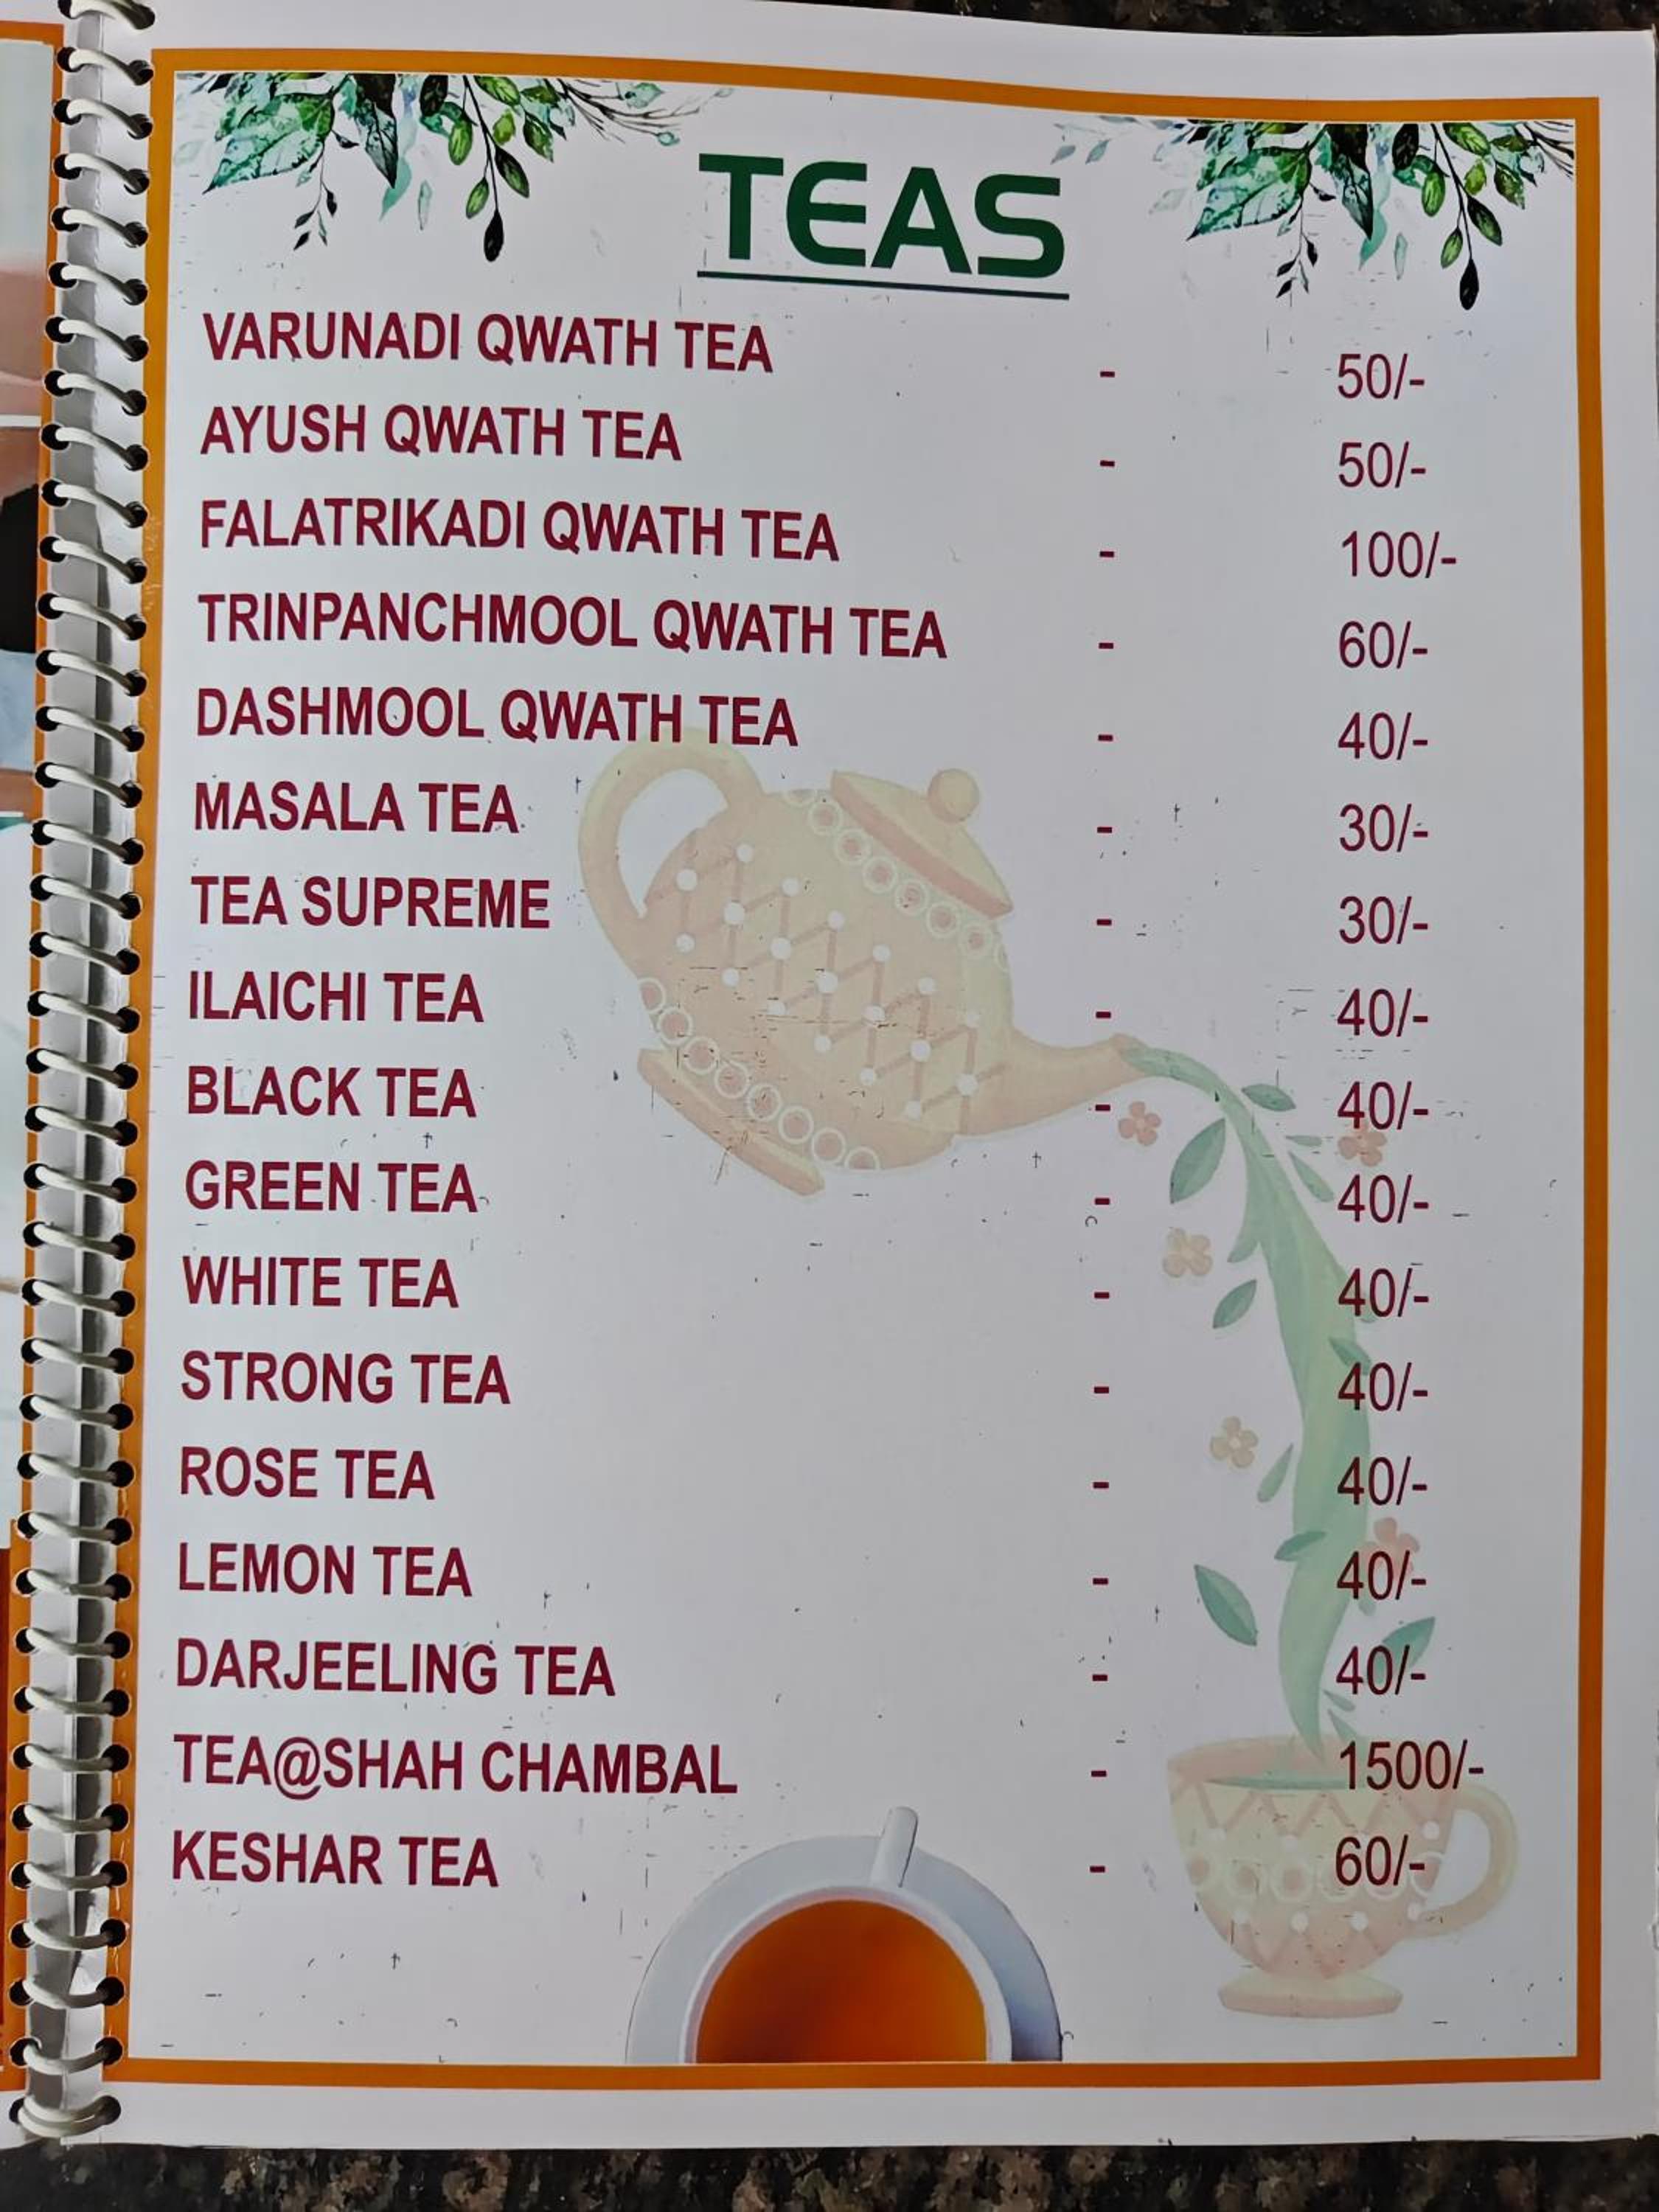 TEAS
VARUNADI QWATH TEA - 50/-
AYUSH QWATH TEA - 50/-
FALATRIKADI QWATH TEA - 100/-
TRINPANCHMOOL QWATH TEA - 60/-
DASHMOOL QWATH TEA - 40/-
MASALA TEA - 30/-
TEA SUPREME - 30/-
ILAICHI TEA - 40/-
BLACK TEA - 40/-
GREEN TEA - 40/-
WHITE TEA - 40/-
STRONG TEA - 40/-
ROSE TEA - 40/-
LEMON TEA - 40/-
DARJEELING TEA - 40/-
TEA@SHAH CHAMBAL - 1500/-
KESHAR TEA - 60/-